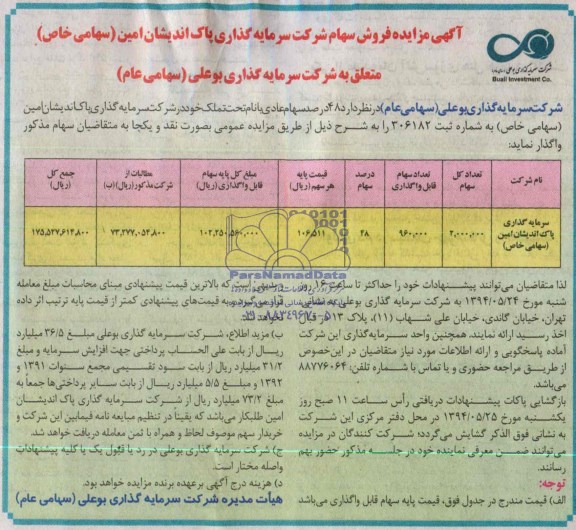 آگهی مزایده فروش سهام شرکت سرمایه گذاری پاک اندیشان امین (سهامی خاص)
متعلق به شرکت سرمایه گذاری بوعلی (سهامی عام)
شرکت سرمایه گذاری بوعلی (سهامی عام)
Buali Investment Co.
شرکت سرمایه گذاری بوعلی (سهامی عام) در نظر دارد ۴۸ درصد سهام عادی با نام تحت تملک خود در شرکت سرمایه گذاری پاک اندیشان امین
(سهامی خاص) به شماره ثبت ۳۰۶۱۸۲ را به شرح ذیل از طریق مزایده عمومی بصورت نقد و یکجا به متقاضیان سهام مذکور
واگذار نماید:
نام شرکت
تعداد کل سهام
تعداد سهام قابل واگذاری
درصد سهام
قیمت پایه هر سهم (ریال)
مبلغ کل پایه سهام قابل واگذاری (ریال)
مطالبات از شرکت مذکور (ریال) (ب)
جمع کل (ریال)
سرمایه گذاری پاک اندیشان امین (سهامی خاص)
۲,۰۰۰,۰۰۰
۹۶۰,۰۰۰
۴۸
۱۰۶,۵۱۱
۱۰۲,۲۵۰,۵۶۰,۰۰۰
۷۳,۲۷۷,۰۵۴,۸۰۰
۱۷۵,۵۲۷,۶۱۴,۸۰۰
ParsNamadData
۰۲۱-۸۸۳۴۹۶۷۰-۵
لذا متقاضیان می‌توانند پیشنهادات خود را حداکثر تا ساعت ۱۶ روز
شنبه مورخ ۱۳۹۴/۰۵/۲۴ به شرکت سرمایه گذاری بوعلی به نشانی
تهران، خیابان گاندی، خیابان علی شهاب (۱۱)، پلاک ۵۱۳ قبال
اخذ رسید ارائه نمایند. همچنین واحد سرمایه‌گذاری این شرکت
آماده پاسخگویی و ارائه اطلاعات مورد نیاز متقاضیان در این‌خصوص
از طریق مراجعه حضوری و یا تماس با شماره تلفن: ۸۸۷۷۶۰۶۴
می‌باشد.
بازگشایی پاکات پیشنهادات دریافتی رأس ساعت ۱۱ صبح روز
یکشنبه مورخ ۱۳۹۴/۰۵/۲۵ در محل دفتر مرکزی این شرکت
به نشانی فوق الذکر گشایش می‌گردد؛ شرکت کنندگان در مزایده
می‌توانند ضمن معرفی نماینده خود در جلسه مذکور حضور بهم
رسانند.
توجه:
الف) قیمت مندرج در جدول فوق، قیمت پایه سهام قابل واگذاری می‌باشد
و بدیهی است که بالاترین قیمت پیشنهادی مبنای محاسبات مبلغ معامله
قرار می‌گیرد و به قیمت‌های پیشنهادی کمتر از قیمت پایه ترتیب اثر داده
نخواهد شد.
ب) مزید اطلاع، شرکت سرمایه گذاری بوعلی مبلغ ۳۶/۵ میلیارد
ریال از بابت علی الحساب پرداختی جهت افزایش سرمایه و مبلغ
۳۱/۲ میلیارد ریال از بابت سود تقسیمی مجمع سنوات ۱۳۹۱ و
۱۳۹۲ و مبلغ ۵/۵ میلیارد ریال از بابت سایر پرداختی‌ها جمعاً به
مبلغ ۷۳/۲ میلیارد ریال از شرکت سرمایه گذاری پاک اندیشان
امین طلبکار می‌باشد که یقیناً در تنظیم مبایعه نامه فیمابین این شرکت و
خریدار سهم موصوف لحاظ و همراه با ثمن معامله دریافت خواهد شد.
ج) شرکت سرمایه گذاری بوعلی در رد یا قبول یک یا کلیه پیشنهادات
واصله مختار است.
د) هزینه درج آگهی برعهده برنده مزایده خواهد بود.
هیأت مدیره شرکت سرمایه گذاری بوعلی (سهامی عام)